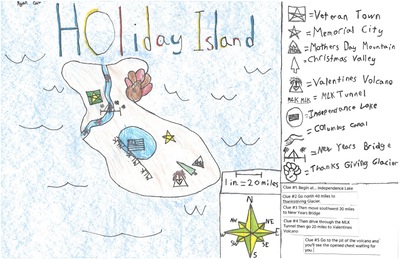 Ryan Carr
Holiday Island
MLK MLK MLK
1 in. = 20 miles
N
NW
NE
W
E
SW
SE
S
= Veteran Town
= Memorial City
= Mothers Day Mountain
= Christmas Valley
= Valentines Volcano
MLK MLK = MLK Tunnel
= Independance Lake
= Columbus Canal
= New Years Bridge
= Thanks Giving Glacier
Clue #1 Begin at... Independence Lake
Clue #2 Go north 40 miles to Thanksgiving Glacier
Clue #3 Then move southwest 20 miles to New Years Bridge
Clue #4 Then drive through the MLK Tunnel then go 20 miles to Valentines Volcano
Clue #5 Go to the pit of the volcano and you'll see the opened chest waiting for you.